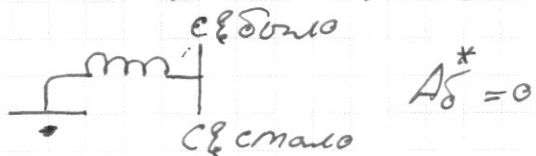 Cℰ было
Aб* = 0
Cℰ стало